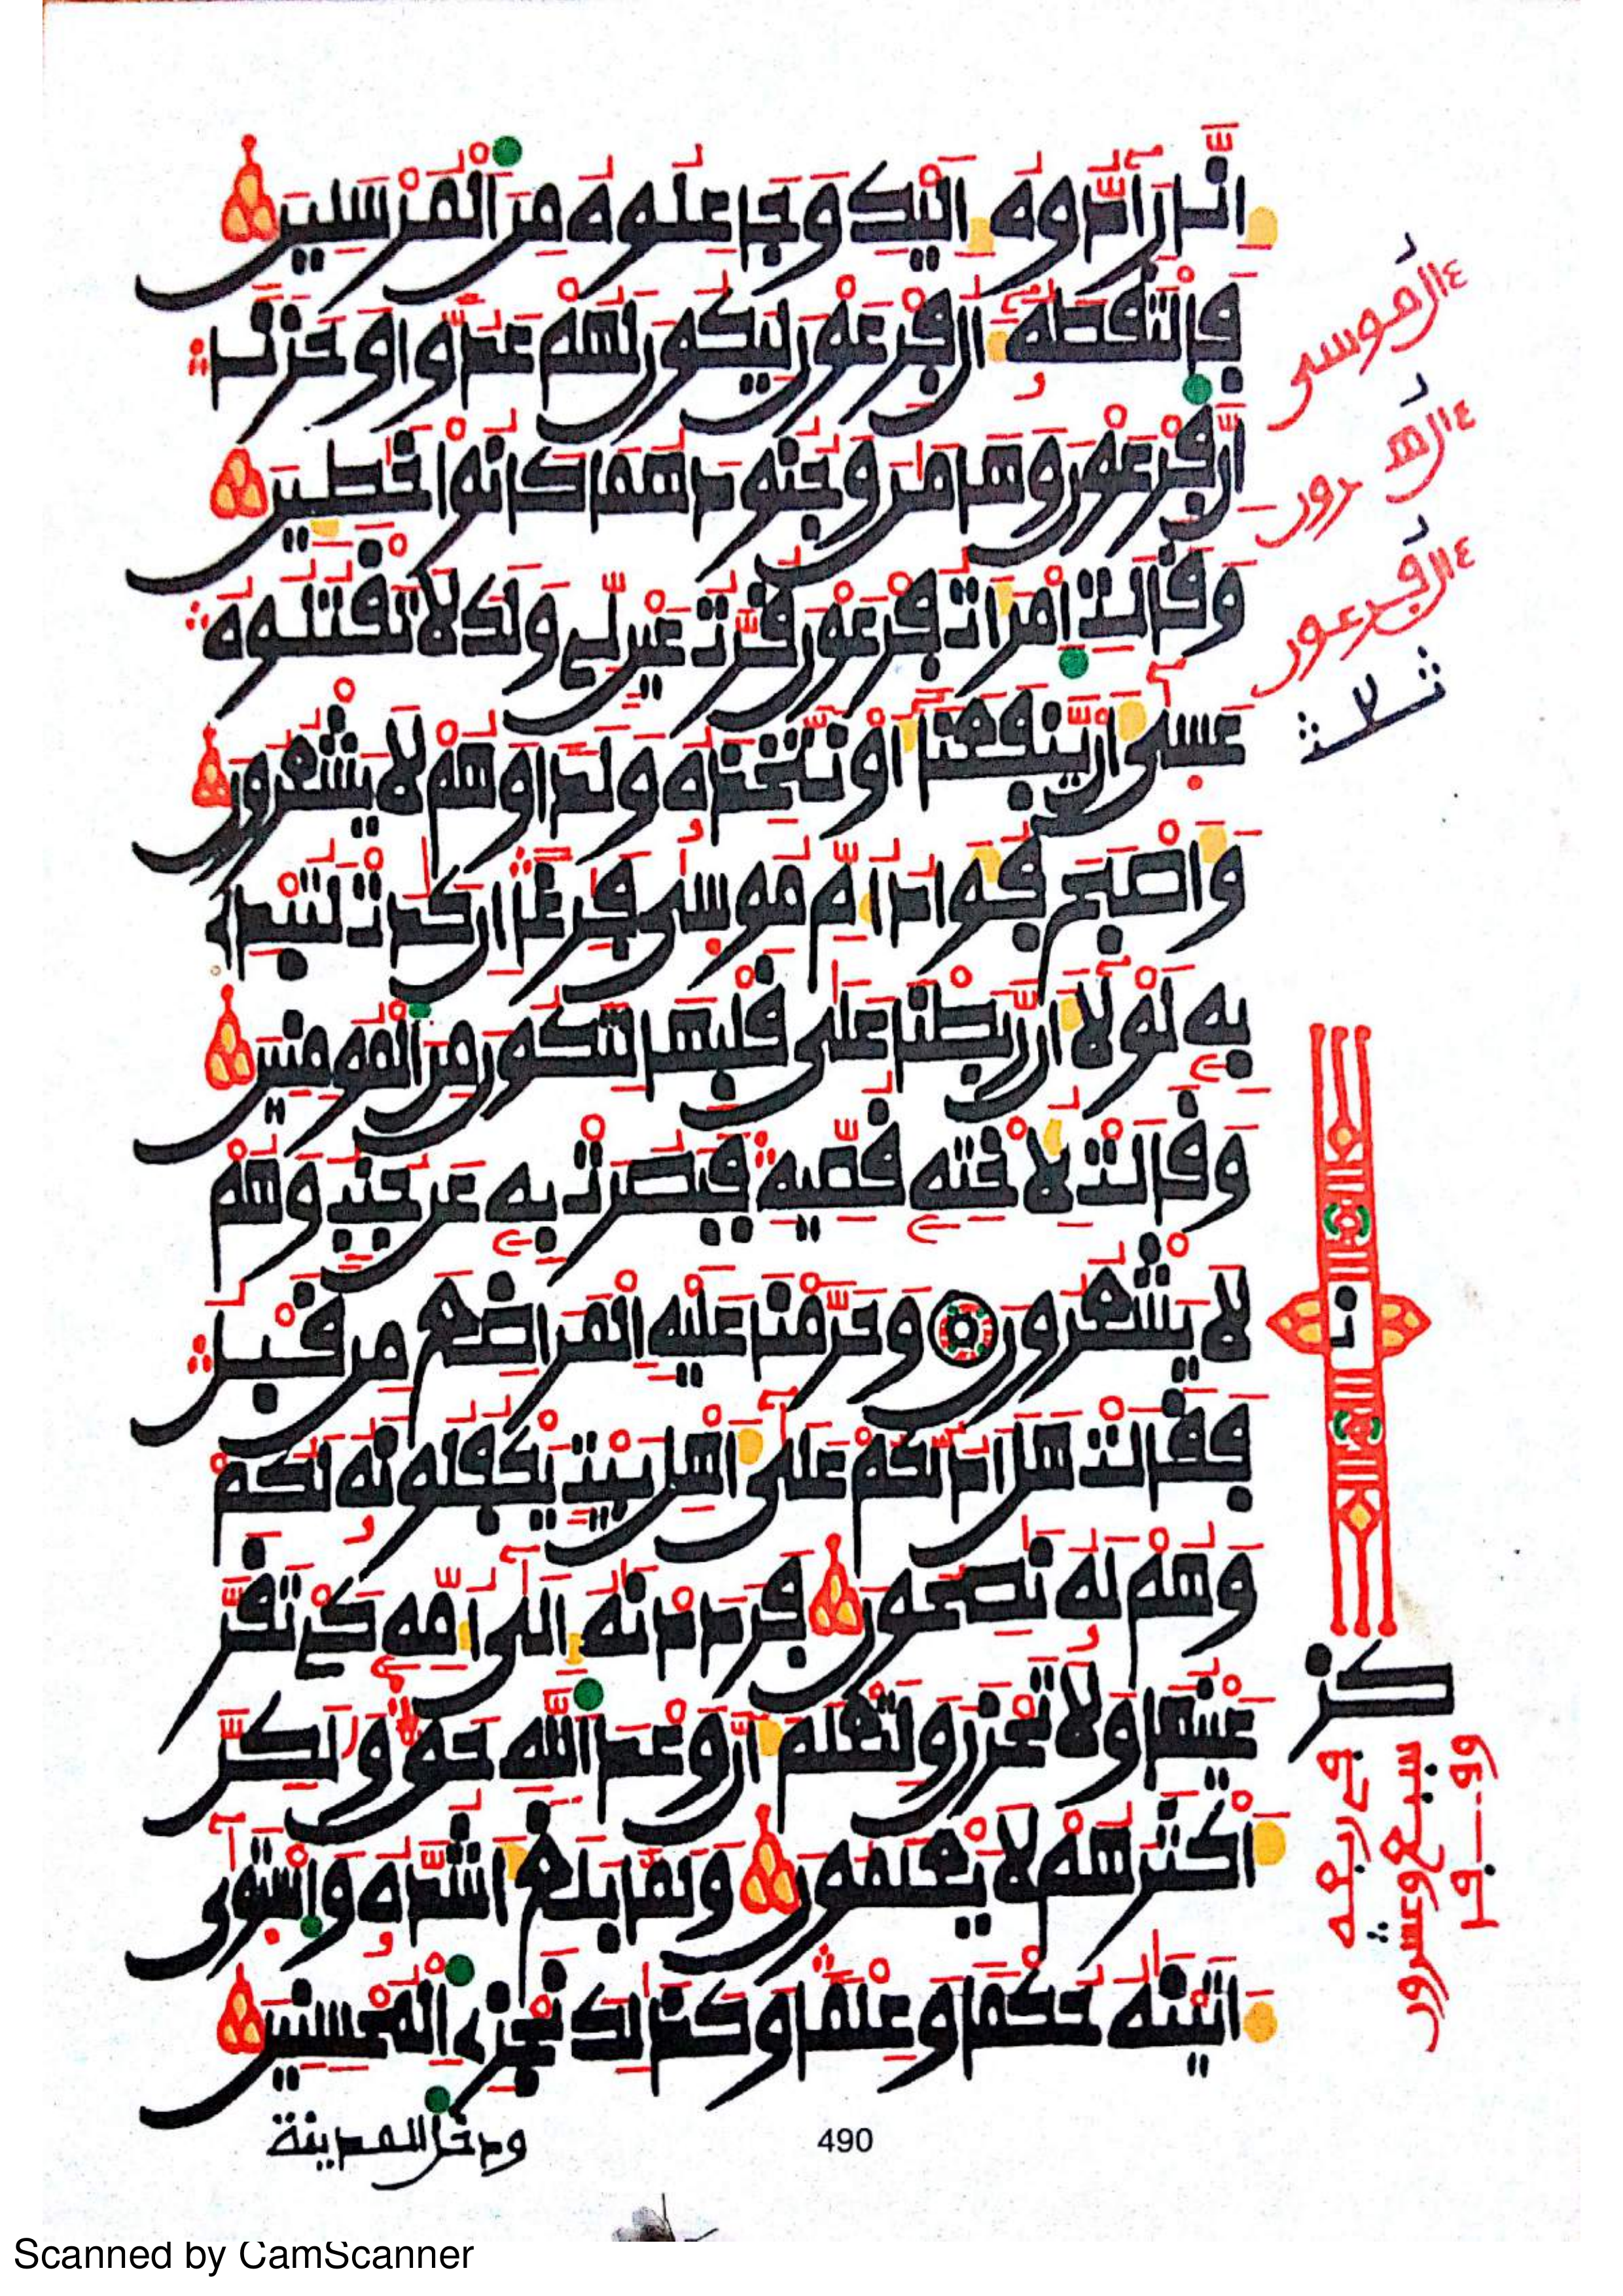 إِنَّا رَآدُّوهُ إِلَيْكِ وَجَاعِلُوهُ مِنَ ٱلْمُرْسَلِينَ
فَالْتَقَطَهُۥٓ ءَالُ فِرْعَوْنَ لِيَكُونَ لَهُمْ عَدُوّٗا وَحَزَناً
اِنَّ فِرْعَوْنَ وَهَٰمَٰنَ وَجُنُودَهُمَا كَانُواْ خَٰطِـِٕينَ
وَقَالَتِ اِمْرَأَتُ فِرْعَوْنَ قُرَّتُ عَيْنٖ لِّے وَلَكَ لَا تَقْتُلُوهُ
عَسَىٰٓ أَنْ يَّنفَعَنَآ أَوْ نَتَّخِذَهُۥ وَلَداٗ وَهُمْ لَا يَشْعُرُونَ
وَأَصْبَحَ فُؤَادُ أُمِّ مُوسَىٰ فَٰرِغاً اِن كَادَتْ لَتُبْدِے
بِهِۦ لَوْلَآ أَن رَّبَطْنَا عَلَىٰ قَلْبِهَا لِتَكُونَ مِنَ ٱلْمُومِنِينَ
وَقَالَتْ لِأُخْتِهِۦ قُصِّيهِ فَبَصُرَتْ بِهِۦ عَن جُنُبٖ وَهُمْ
لَا يَشْعُرُونَ وَحَرَّمْنَا عَلَيْهِ اِ۬لْمَرَاضِعَ مِن قَبْلُ
فَقَالَتْ هَلَ اَدُلُّكُمْ عَلَىٰٓ أَهْلِ بَيْتٖ يَكْفُلُونَهُۥ لَكُمْ
وَهُمْ لَهُۥ نَٰصِحُونَ فَرَدَدْنَٰهُ إِلَىٰٓ أُمِّهِۦ كَےْ تَقَرَّ
عَيْنُهَا وَلَا تَحْزَنَ وَلِتَعْلَمَ أَنَّ وَعْدَ اَ۬للَّهِ حَقّٞ وَلَٰكِنَّ
أَكْثَرَهُمْ لَا يَعْلَمُونَ وَلَمَّا بَلَغَ أَشُدَّهُۥ وَاسْتَوَىٰٓ
ءَاتَيْنَٰهُ حُكْماٗ وَعِلْماٗ وَكَذَٰلِكَ نَجْزِے اِ۬لْمُحْسِنِينَ
ودخل المدينة
490
Scanned by CamScanner